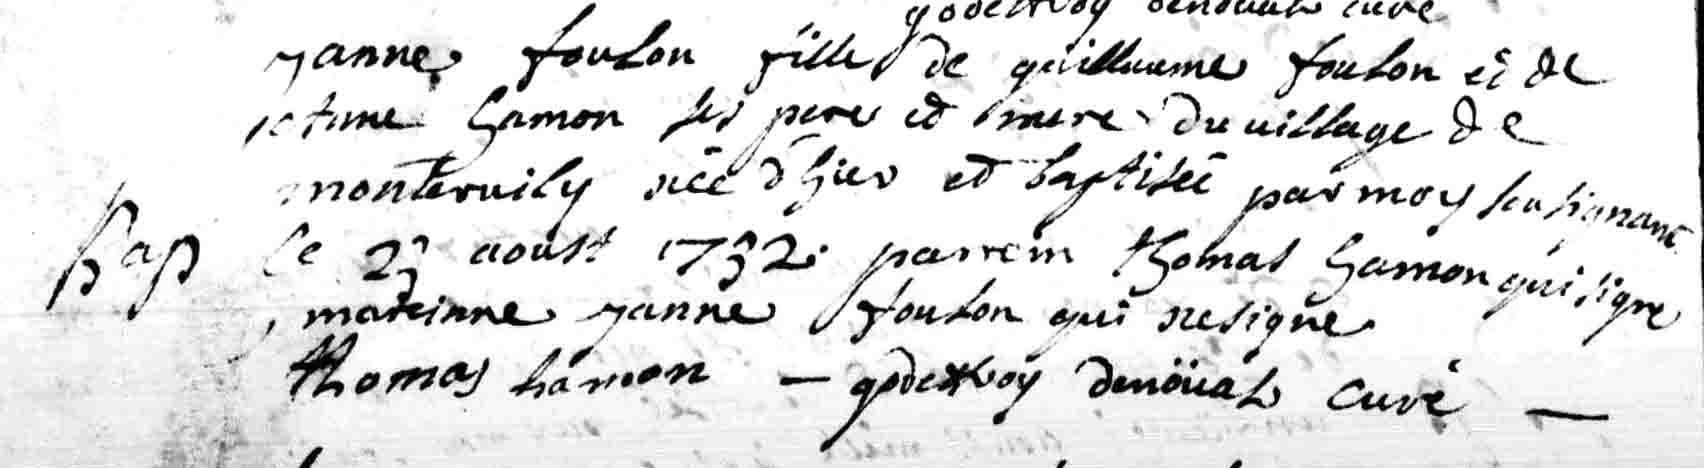 godeffroy denoüal curé
janne foulon fille de guilluume foulon et de
hamon ses pere et mere du village de
montervily née d'hier et baptiséé par moy sousignant
bap le 23 aoust 1732. parrein thomas hamon qui signe
mareinne janne foulon qui ne signe
thomas hamon — godeffroy denoüal curé —